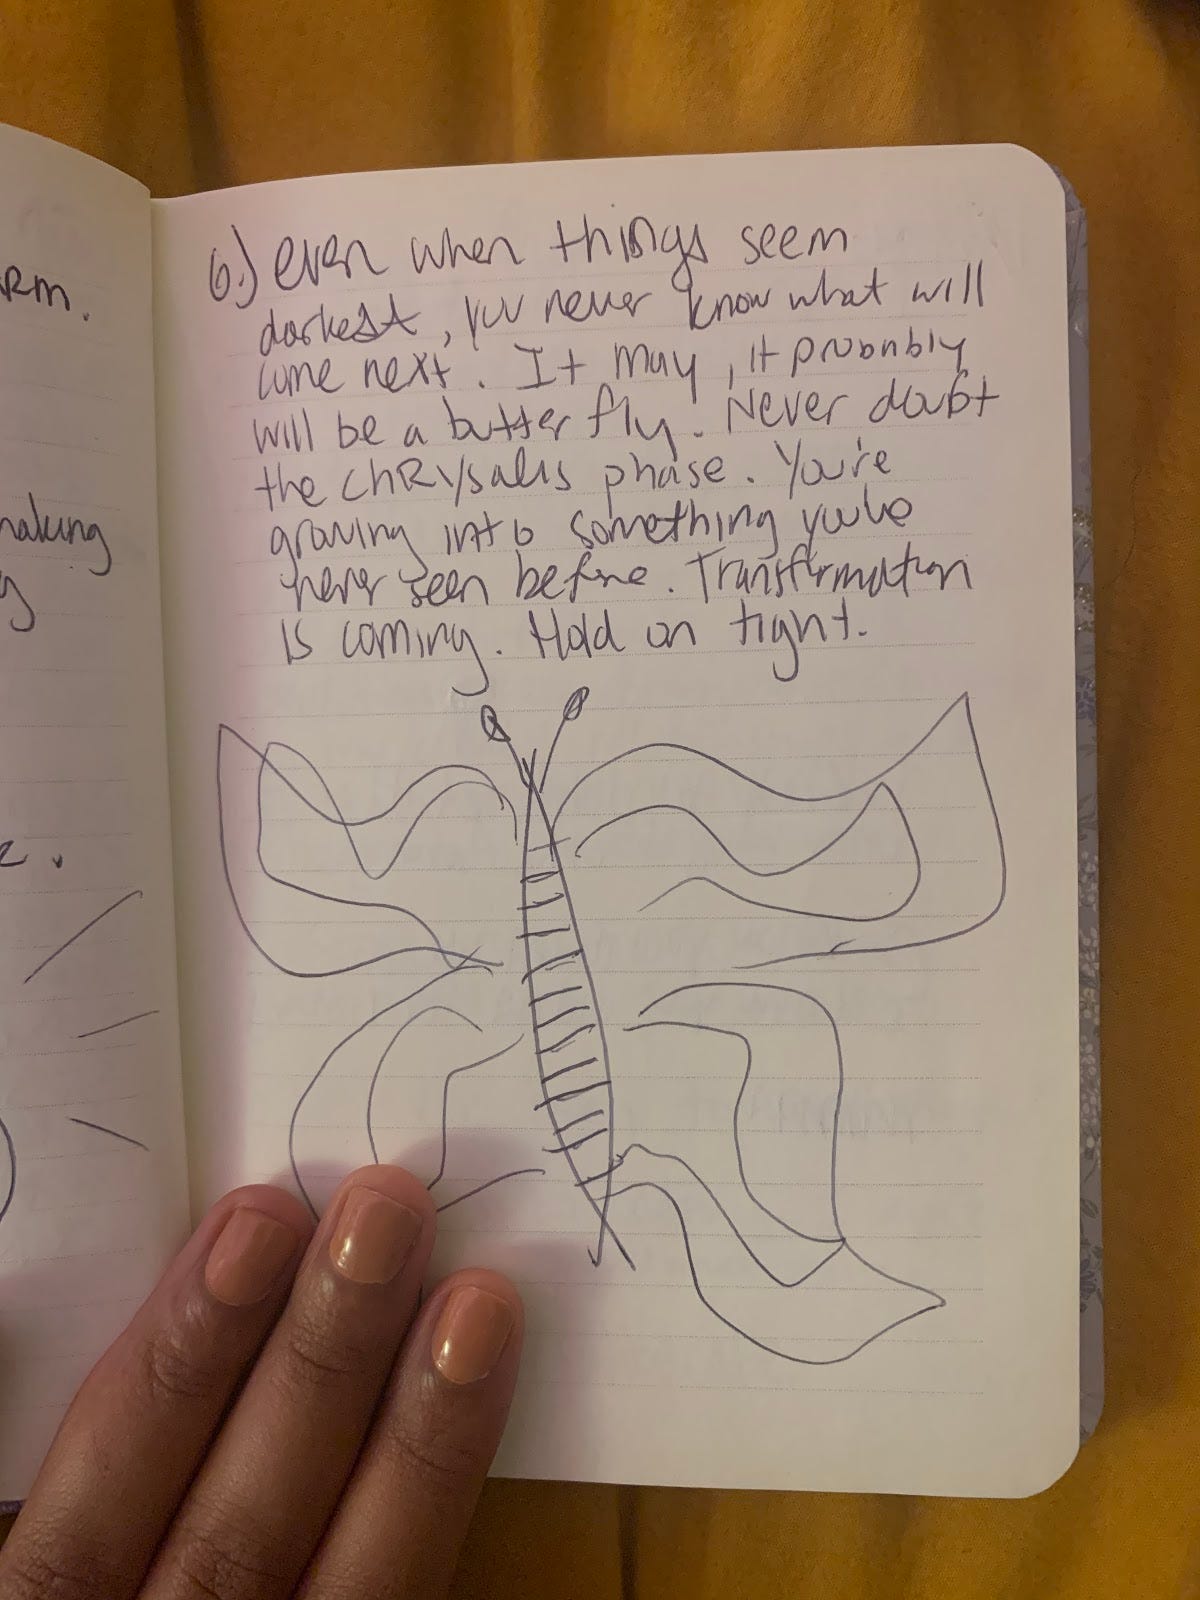 6.) even when things seem
darkest, you never know what will
come next. It may, it probably
will be a butterfly. Never doubt
the chRysalis phase. You're
growing into something you've
never seen before. Transformation
is coming. Hold on tight.